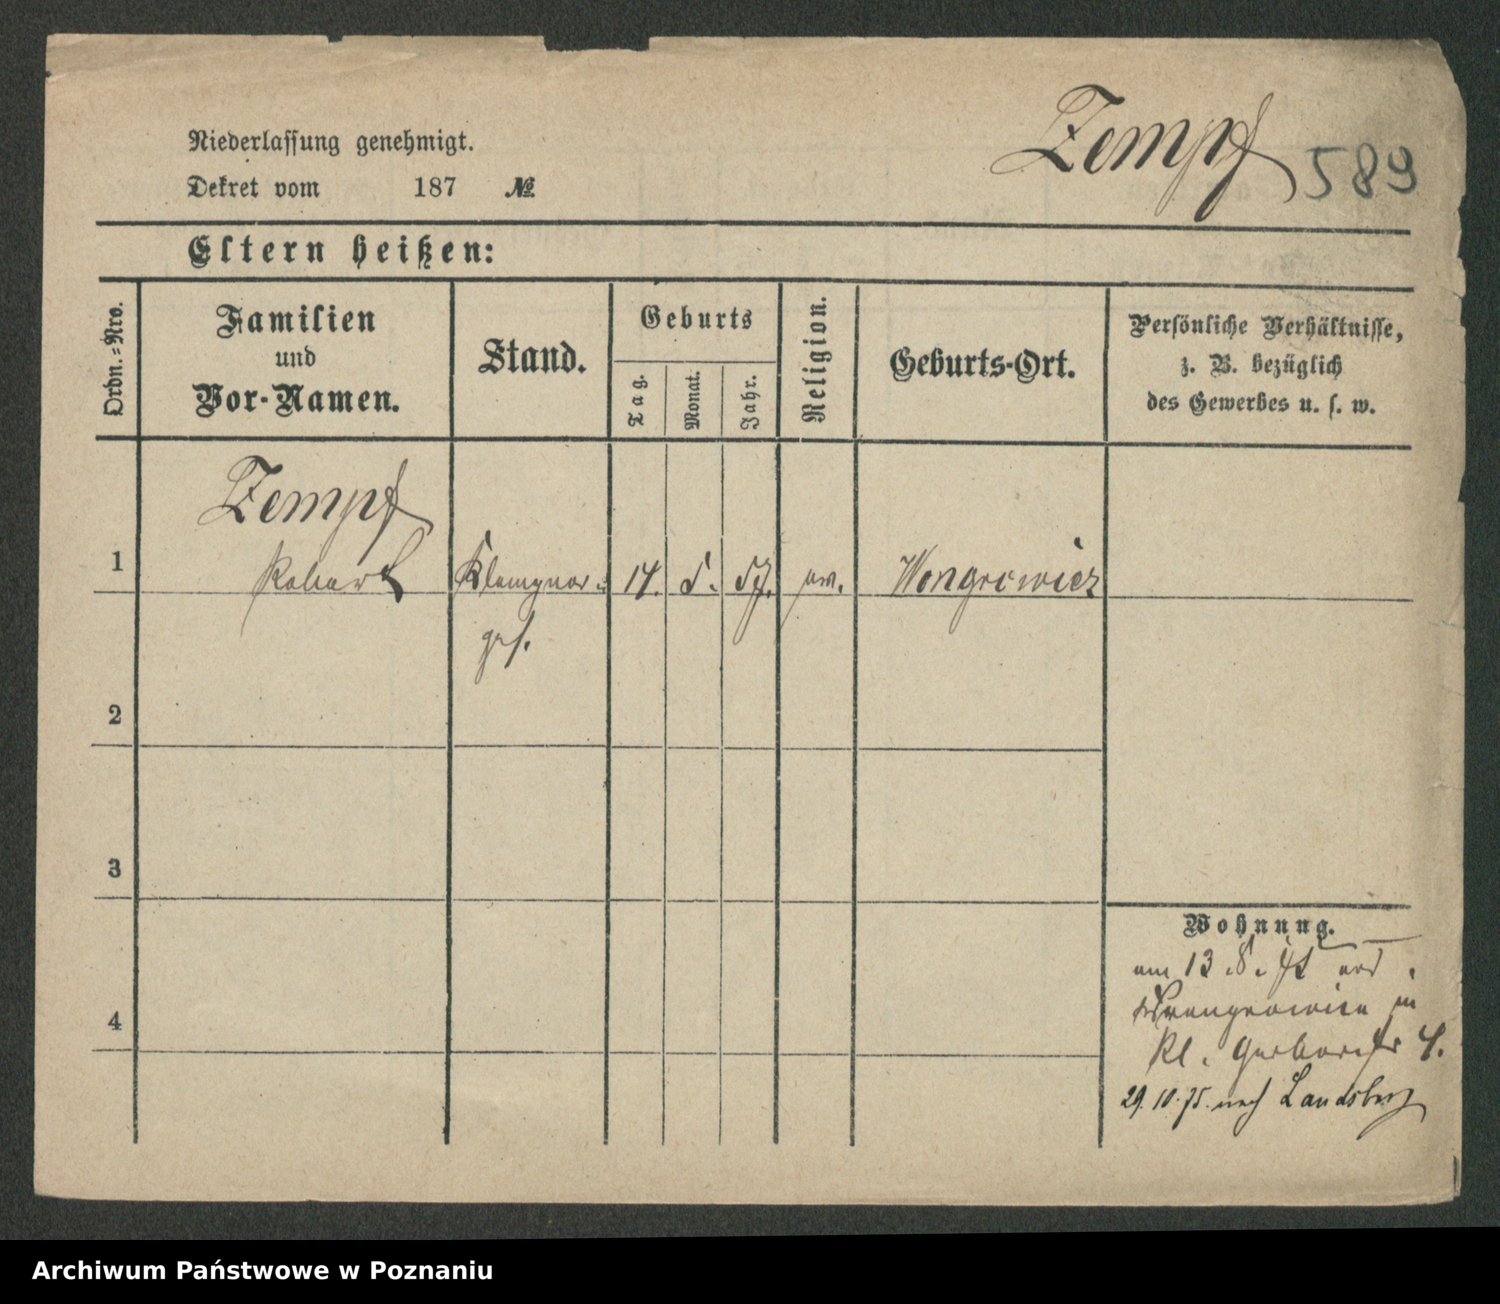 Zempf 589
Niederlassung genehmigt.
Dekret vom 187 №
Eltern heißen:
Ordn.-Nro.
Familien
und
Vor-Namen.
Stand.
Geburts
Tag.
Monat.
Jahr.
Religion.
Geburts-Ort.
Persönliche Verhältnisse,
z. B. bezüglich
des Gewerbes u. s. w.
Zempf
1 Robert Klempner- 14. 5. 57. ev. Wongrowiez
ges.
2
3
4
Wohnung.
am 13.8.75 aus
Wrongrowiec in
Kl. Gerberstr 4.
29.10.75. nach Landsberg
Archiwum Państwowe w Poznaniu